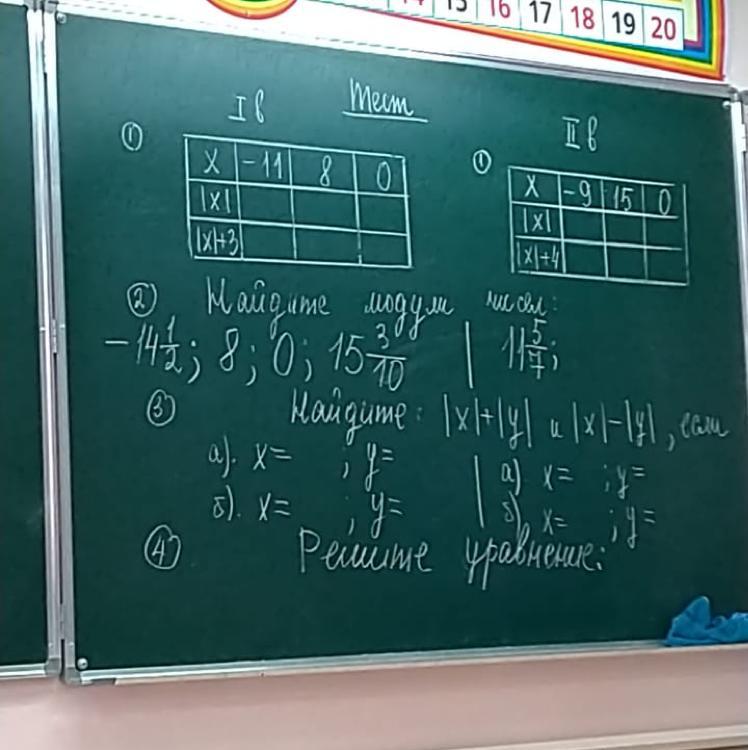 14 15 16 17 18 19 20
I в Тест II в
① x -11 8 0
|x|
|x|+3
① x -9 15 0
|x|
|x|+4
② Найдите модули чисел:
-14 1/2; 8; 0; 15 3/10 | 11 5/7;
③ Найдите: |x|+|y| и |x|-|y|, если
а). x= ; y= | а) x= ; y=
б). x= ; y= | б). x= ; y=
④ Решите уравнение: